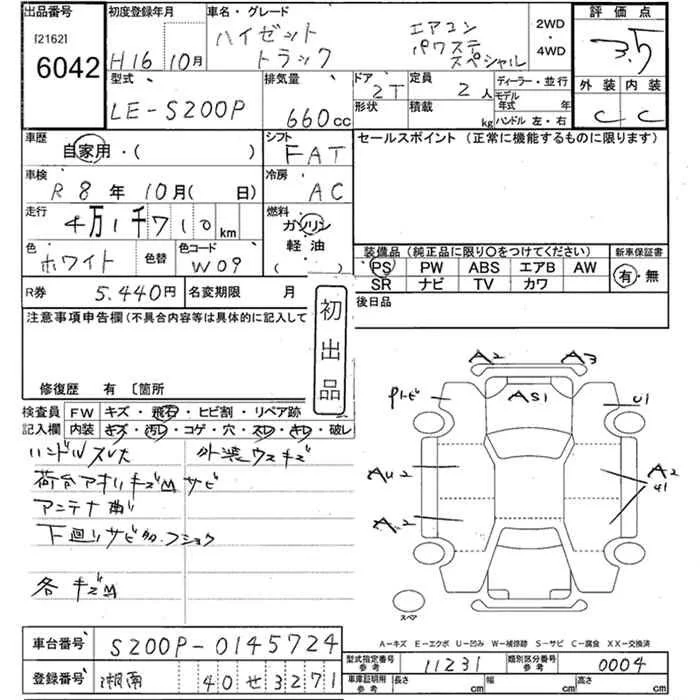 出品番号
[2162]
6042
初度登録年月
H16 10月
車名・グレード
ハイゼット
トラック
エアコン
パワステ
スペシャル
2WD
・
4WD
評価点
3.5
外装 内装
C C
型式
LE-S200P
排気量
660cc
ドア 2T
形状
定員
2人
積載
kg
ディーラー・並行
モデル年式 年
ハンドル 左・右
車歴
自家用・( )
シフト
FAT
セールスポイント (正常に機能するものに限ります)
車検
R 8 年 10月( 日)
冷房
AC
走行
4万1千710km
燃料
ガソリン
軽油
( )
色
ホワイト
色替
色コード
W09
装備品 (純正品に限り○をつけてください)
新車保証書
PS PW ABS エアB AW
SR ナビ TV カワ
有・無
R券 5.440円
名変期限 月
後日品
注意事項申告欄(不具合内容等は具体的に記入して
初出品
修復歴 有 〔箇所
検査員
記入欄
FW キズ・飛石・ヒビ割・リペア跡
内装 キズ・汚レ・コゲ・穴・スレ・キレ・破レ
ハンドルスレ大 外装ウスキズ
荷台アオリキズM サビ
アンテナ曲
下廻りサビ多 フショク
各キズM
A2 A3
AS1
Pトビ
U1
AU2
A2
A2
U1
スペア
A－キズ E－エクボ U－凹み W－補修跡 S－サビ C－腐食 XX－交換済
車台番号
S200P-0145724
型式指定番号
参考
11231
類別区分番号
参考
0004
登録番号
湘南 40 せ 3271
車庫証明用
参考
長さ cm
幅 cm
高さ cm